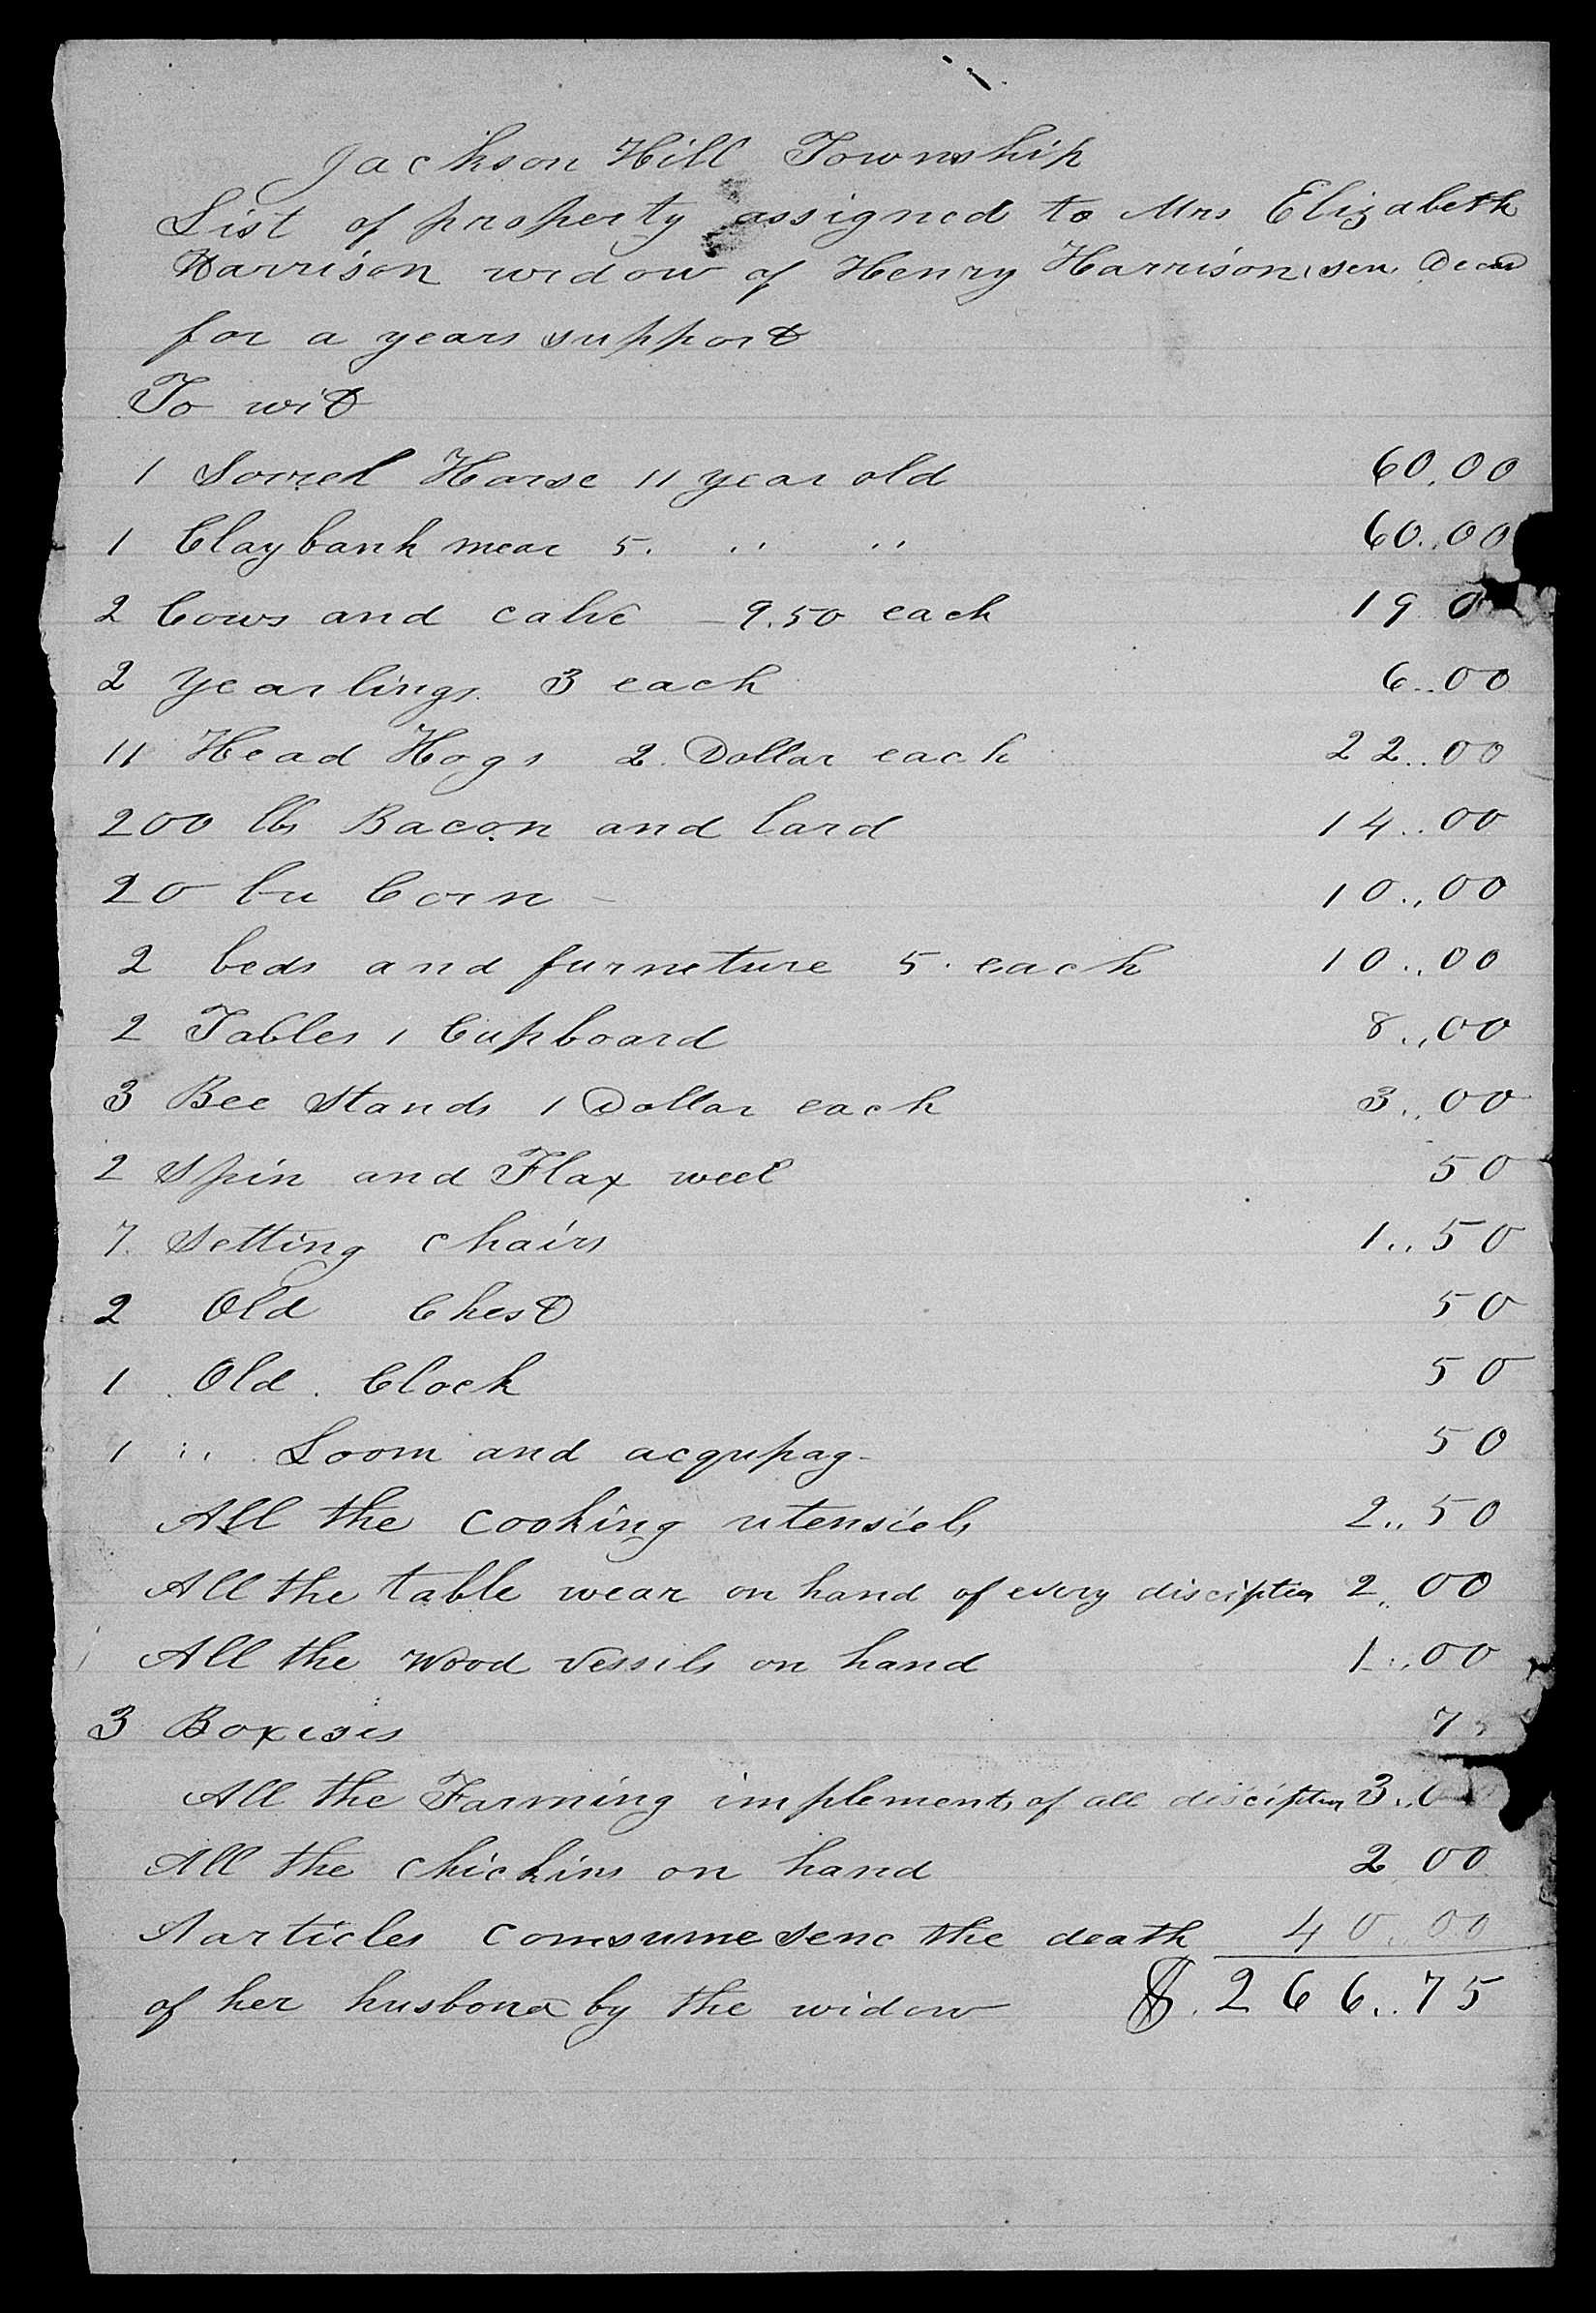 Jackson Hill Township
List of property assigned to Mrs Elizabeth
Harrison widow of Henry Harrison, sen, Decd
for a years support
To wit
1 Sorrel Horse 11 year old 60.00
1 Claybank mear 5. " " 60..00
2 Cows and calve - 9.50 each 19 0
2 yearlings. 3 each 6..00
11 Head Hogs 2. Dollar each 22..00
200 lbs Bacon and lard 14..00
20 bu Corn - 10..00
2 beds and furneture 5. each 10..00
2 Tables 1 Cupboard 8..00
3 Bee stands 1 Dollar each 3..00
2 Spin and Flax weel 50
7. Setting chairs 1..50
2 Old Chest 50
1 . Old . Clock 50
1 " . Loom and acqupag- 50
All the cooking utensiels 2..50
All the table wear on hand of every disciption 2..00
All the wood vessils on hand 1..00
3 Boxeses 7
All the Farming implements of all disciption 3..0
All the chickins on hand 2 00
Aarticles comsume senc the death 40..00
of her husbond by the widow $.266..75